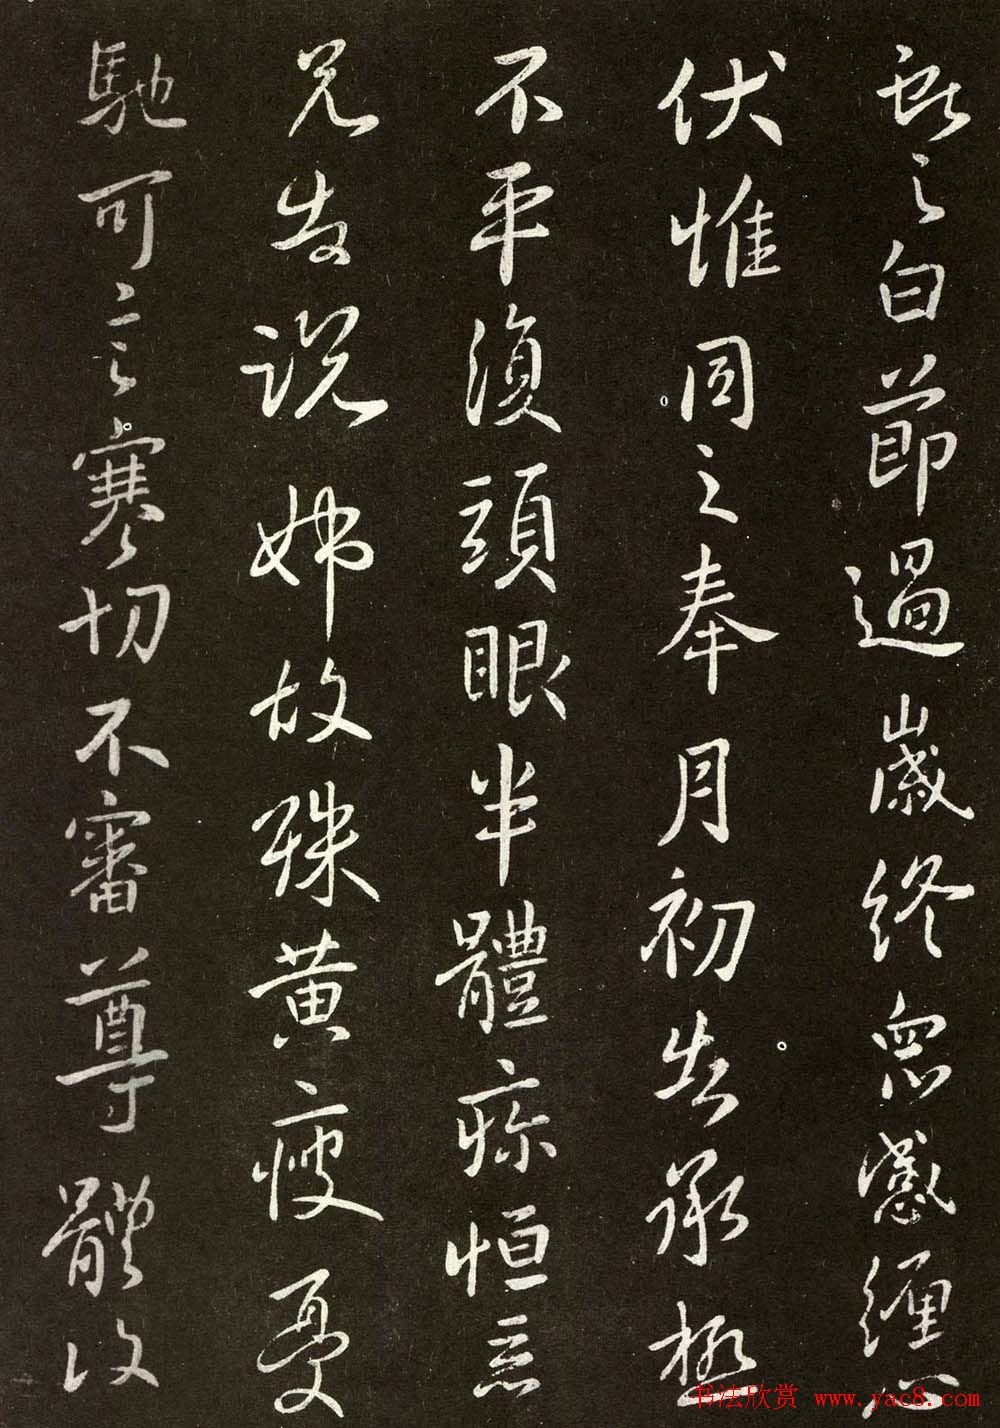 獻之白節過歲終衆感纏心
伏惟同之奉月初告承極
不平復頭眼半體疼恒惡
兄告說姊故殊黃瘦憂
馳可言寒切不審尊體復
书法欣赏 www.yac8.com